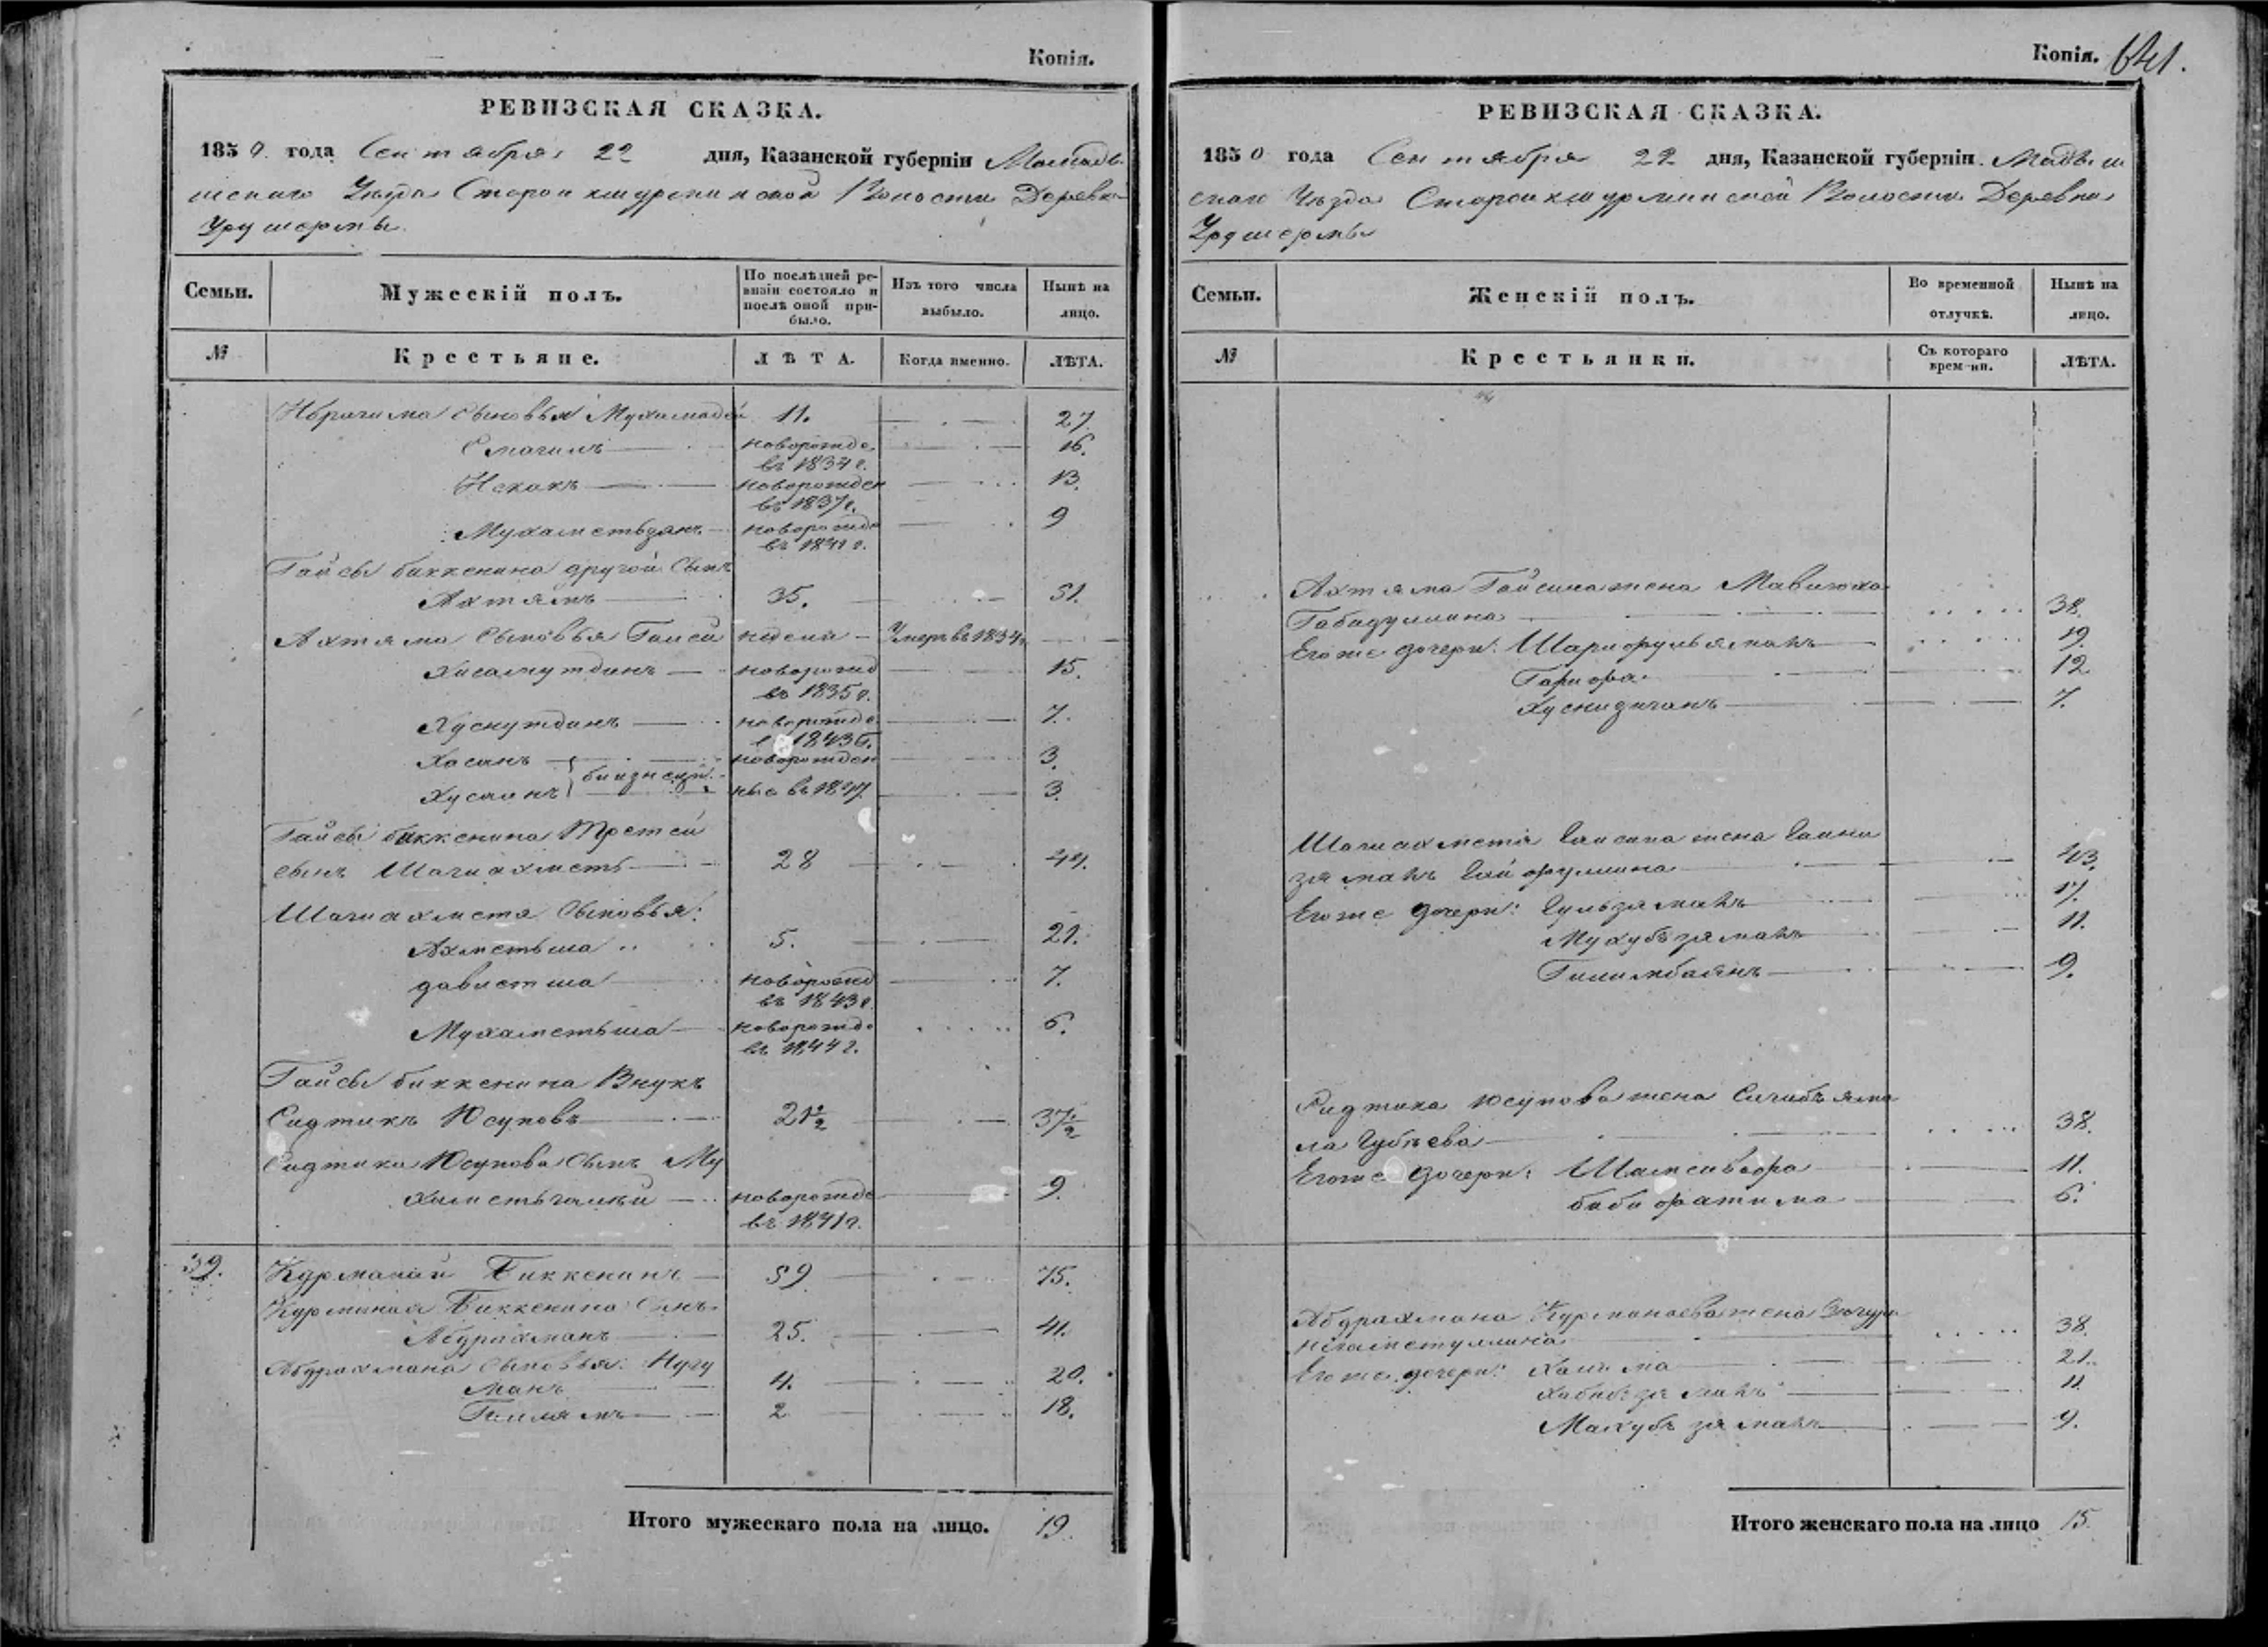 Копія.
РЕВИЗСКАЯ СКАЗКА.
1850 года Сентября 22 дня, Казанской губерніи Мамады
шскаго Уѣзда Старои кшурминской Волости Деревни
Урушермы.
Семьи. Мужескій полъ. По послѣдней ревизіи состояло и послѣ оной прибыло. Изъ того числа выбыло. Нынѣ на лицо.
№ Крестьяне. ЛѢТА. Когда именно. ЛѢТА.
Ибрагима Сыновья Мухамадей 11. 27
Смагилъ новорожде. 16.
въ 1834 г.
Искакъ новорожден 13.
въ 1837 г.
Мухаметьзянъ новорожде 9
въ 1841 г.
Гайсы биккенина другой Сынъ
Ахтямъ 35. 51.
Ахтяма Сыновья Гайси недели Умеръ въ 1834 г.
Хисамутдинъ новорожд 15.
въ 1835 г.
Хуснутдинъ новорожде 7.
1843 г.
Хасанъ новорожден 3.
Хусаинъ близнецы ные въ 1847. 3.
Гайсы биккенина Третей
сынъ Шагиахметь 28 44.
Шагиахметя Сыновья:
Ахметьша 5. 21.
давлетша новорожд 7.
въ 1843 г.
Мухаметьша новорожде 6.
въ 1844 г.
Гайсы биккенина Внукъ
Сидтикъ Юсуповъ 21½ 37½
Сидтика Юсупова Сынъ Му
хаметьгалий новорожде 9.
въ 1841 г.
39. Курманай Биккенинъ 59 75.
Курманая Биккенина Сынъ
Абдрахманъ 25. 41.
Абдрахмана Сыновья: Нугу
манъ 4. 20.
Гилямъ 2 18.
Итого мужескаго пола на лицо. 19.
Копія. 641.
РЕВИЗСКАЯ СКАЗКА.
1850 года Сентября 22 дня, Казанской губерніи. Мадыш
скаго Уѣзда Старои кшурминской Волости Деревни
Урушермы
Семьи. Женскій полъ. Во временной отлучкѣ. Нынѣ на лицо.
№ Крестьянки. Съ котораго времени. ЛѢТА.
Ахтяма Гайсина жена Мавизюха
Габидуллина 38.
Егоже дочери: Шарифульямалъ 19.
Гарифа 12
Хуснизиганъ 7.
Шагиахметя Гайсина жена Гайни
зямалъ Гайфуллина 43.
Егоже дочери: Гульзямалъ 17.
Мухубьзямалъ 11.
Гилимбаянъ 9.
Сидтика Юсупова жена Сигибьяма
ла Губѣева 38.
Егоже дочери: Шамсибзофа 11.
биби фатима 6.
Абдрахмана Курманаева жена
Нигаметуллина 38.
Егоже дочери: Халима 21.
Хабибьзямалъ 11
Махубьзямалъ 9.
Итого женскаго пола на лицо 15.